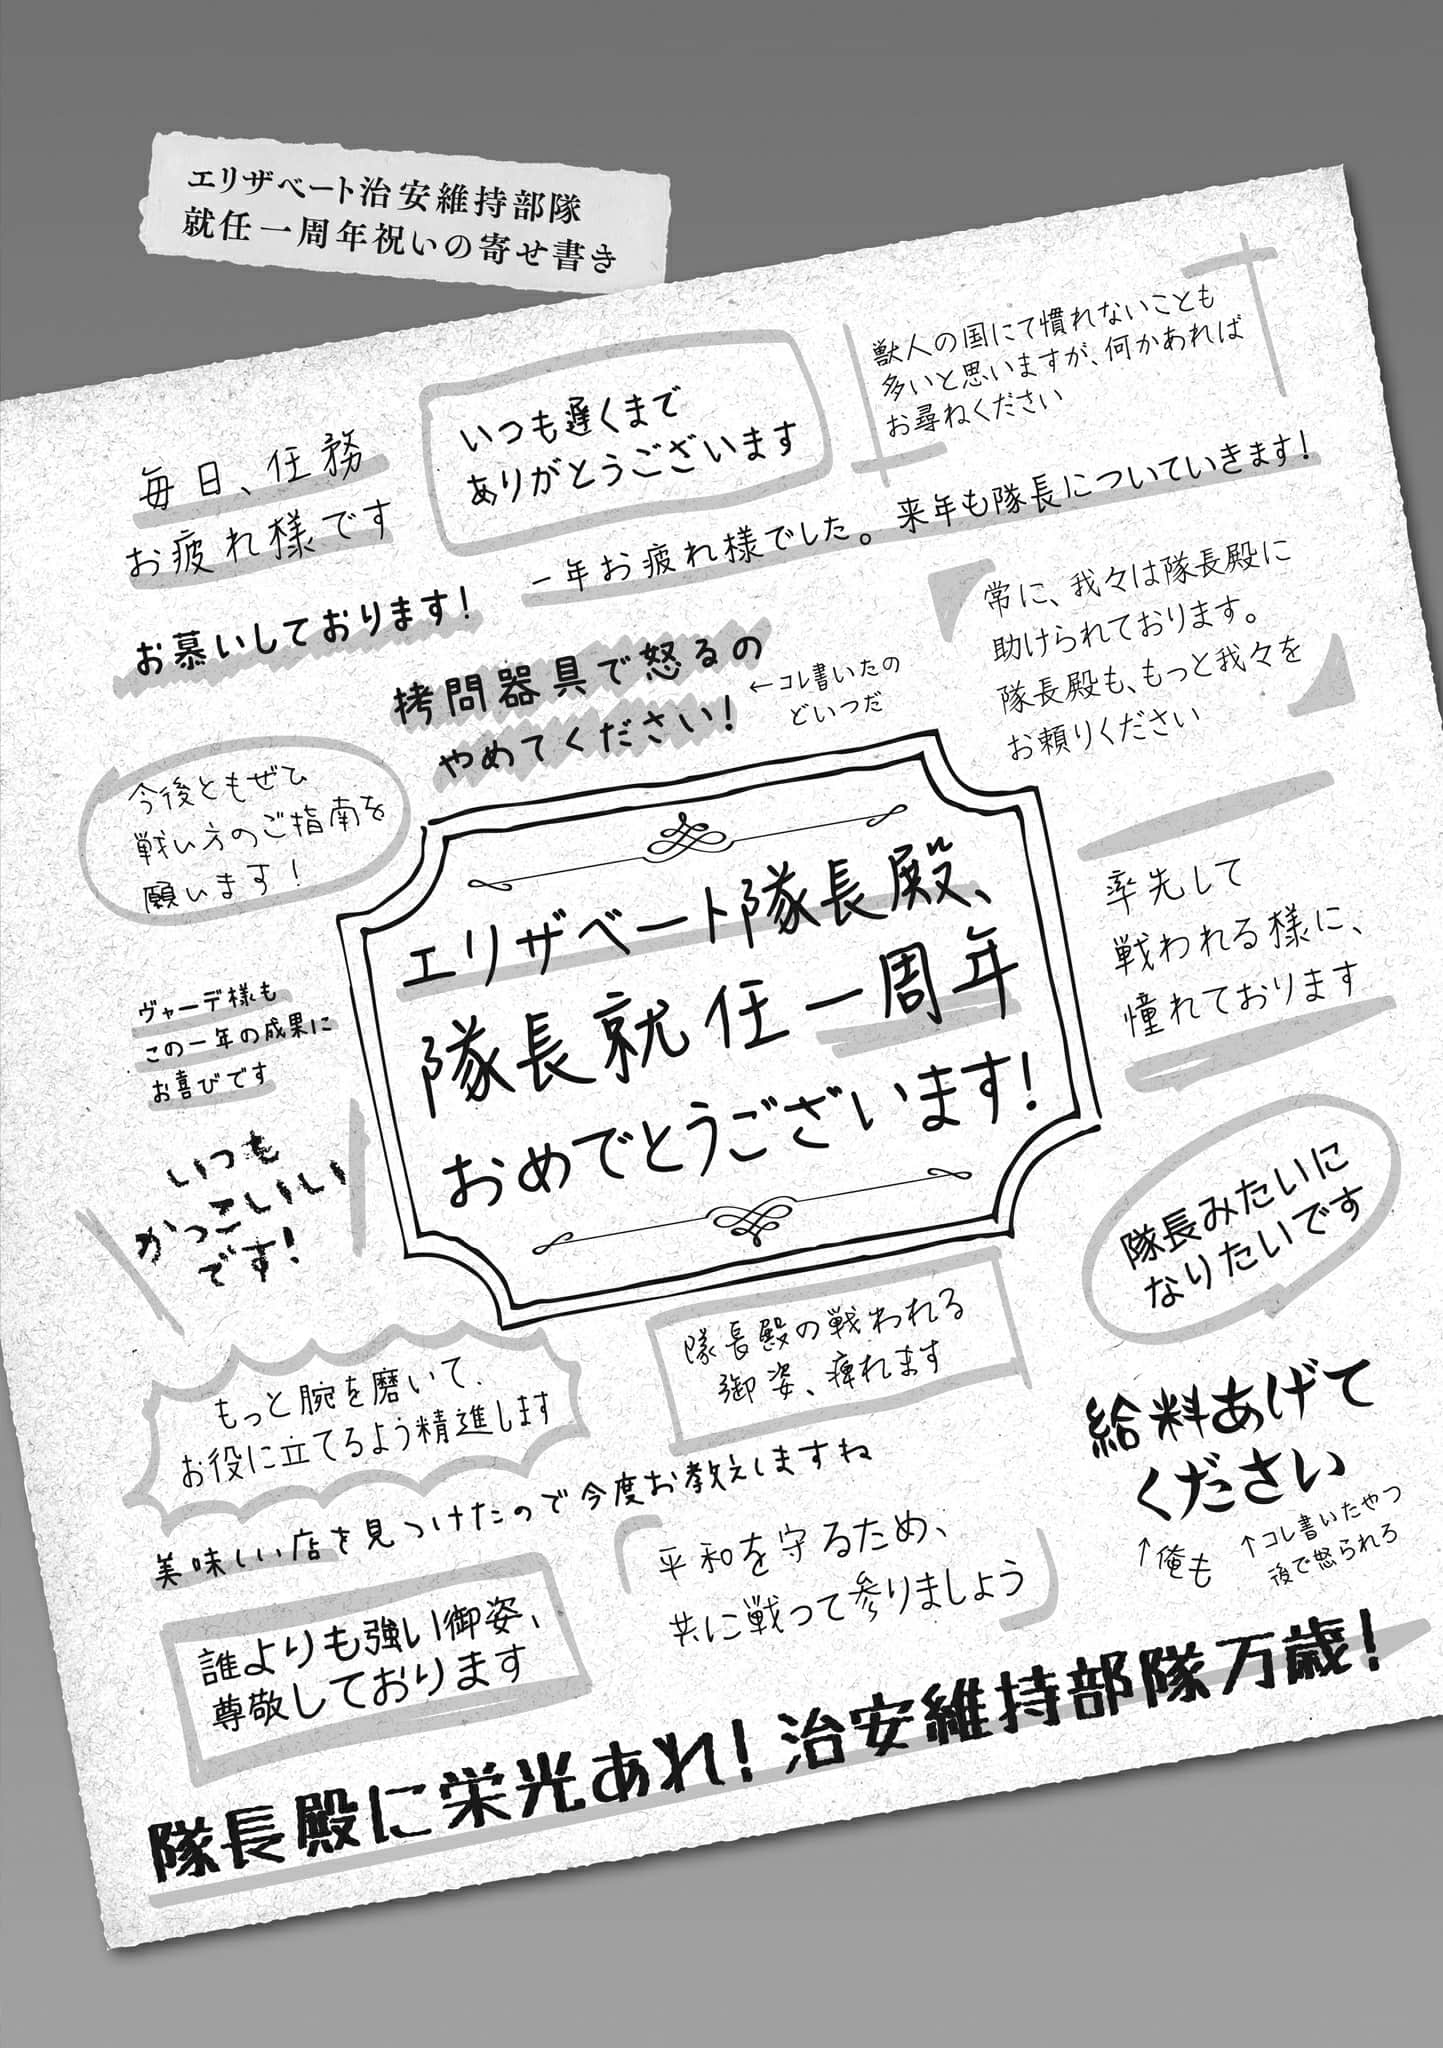 エリザベート治安維持部隊
就任一周年祝いの寄せ書き
獣人の国にて慣れないことも
多いと思いますが、何かあれば
お尋ねください
いつも遅くまで
ありがとうございます
毎日、任務
お疲れ様です
一年お疲れ様でした。来年も隊長についていきます!
お慕いしております!
常に、我々は隊長殿に
助けられております。
隊長殿も、もっと我々を
お頼りください
拷問器具で怒るの
やめてください!
←コレ書いたの
どいつだ
今後ともぜひ
戦い方のご指南を
願います!
エリザベート隊長殿、
隊長就任一周年
おめでとうございます!
率先して
戦われる様に、
憧れております
ヴァーデ様も
この一年の成果に
お喜びです
いつも
かっこいい
です!
隊長みたいに
なりたいです
隊長殿の戦われる
御姿、痺れます
もっと腕を磨いて、
お役に立てるよう精進します
給料あげて
ください
↑俺も
↑コレ書いたやつ
後で怒られろ
美味しい店を見つけたので今度お教えしますね
平和を守るため、
共に戦って参りましょう
誰よりも強い御姿、
尊敬しております
隊長殿に栄光あれ!治安維持部隊万歳!